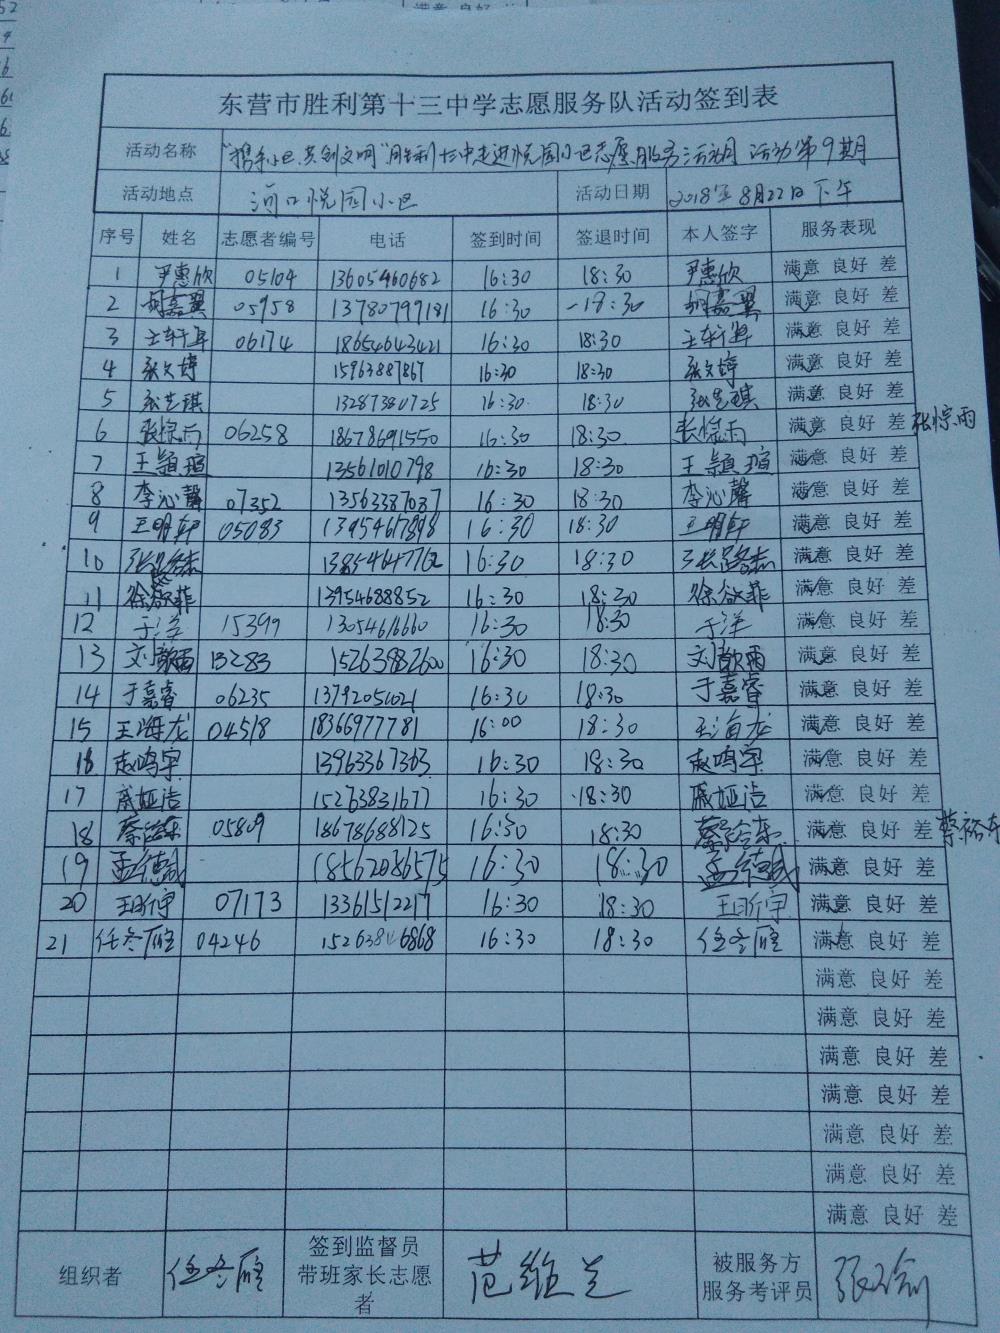 东营市胜利第十三中学志愿服务队活动签到表
活动名称 "携手小区共创文明"胜利十三中走进悦园小区志愿服务活动月 活动第9期
活动地点 河口悦园小区 活动日期 2018年8月22日下午
序号 姓名 志愿者编号 电话 签到时间 签退时间 本人签字 服务表现
1 尹惠欣 05104 13605460682 16:30 18:30 尹惠欣 满意 良好 差
2 胡嘉翼 05958 13780799181 16:30 18:30 胡嘉翼 满意 良好 差
3 06174 18654643421 16:30 18:30 满意 良好 差
4 张文婷 15963887867 16:30 18:30 张文婷 满意 良好 差
5 张艺琪 13287380725 16:30 18:30 张艺琪 满意 良好 差
6 张惊雨 06258 18678691550 16:30 18:30 张惊雨 满意 良好 差 张惊雨
7 王颢瑄 13561010798 16:30 18:30 王颢瑄 满意 良好 差
8 李沁馨 07352 13563387037 16:30 18:30 李沁馨 满意 良好 差
9 王明轩 05083 13954617898 16:30 18:30 王明轩 满意 良好 差
10 13854647762 16:30 18:30 满意 良好 差
11 13954688852 16:30 18:30 满意 良好 差
12 于洋 15399 13054616660 16:30 18:30 于洋 满意 良好 差
13 刘歆雨 13283 15263982600 16:30 18:30 刘歆雨 满意 良好 差
14 于嘉睿 06235 13792051021 16:30 18:30 于嘉睿 满意 良好 差
15 王海龙 04518 18366977781 16:00 18:30 王海龙 满意 良好 差
16 赵鸣宇 13963367363 16:30 18:30 赵鸣宇 满意 良好 差
17 戚娅洁 15263831677 16:30 18:30 戚娅洁 满意 良好 差
18 蔡裕东 05809 18678688125 16:30 18:30 蔡裕东 满意 良好 差 蔡裕东
19 孟德诚 18562086575 16:30 18:30 孟德诚 满意 良好 差
20 王昕宇 07173 13361512217 16:30 18:30 王昕宇 满意 良好 差
21 任冬雁 04246 15263816868 16:30 18:30 任冬雁 满意 良好 差
满意 良好 差
满意 良好 差
满意 良好 差
满意 良好 差
满意 良好 差
满意 良好 差
满意 良好 差
组织者 任冬雁 签到监督员 范维兰 被服务方
带班家长志愿 服务考评员
者